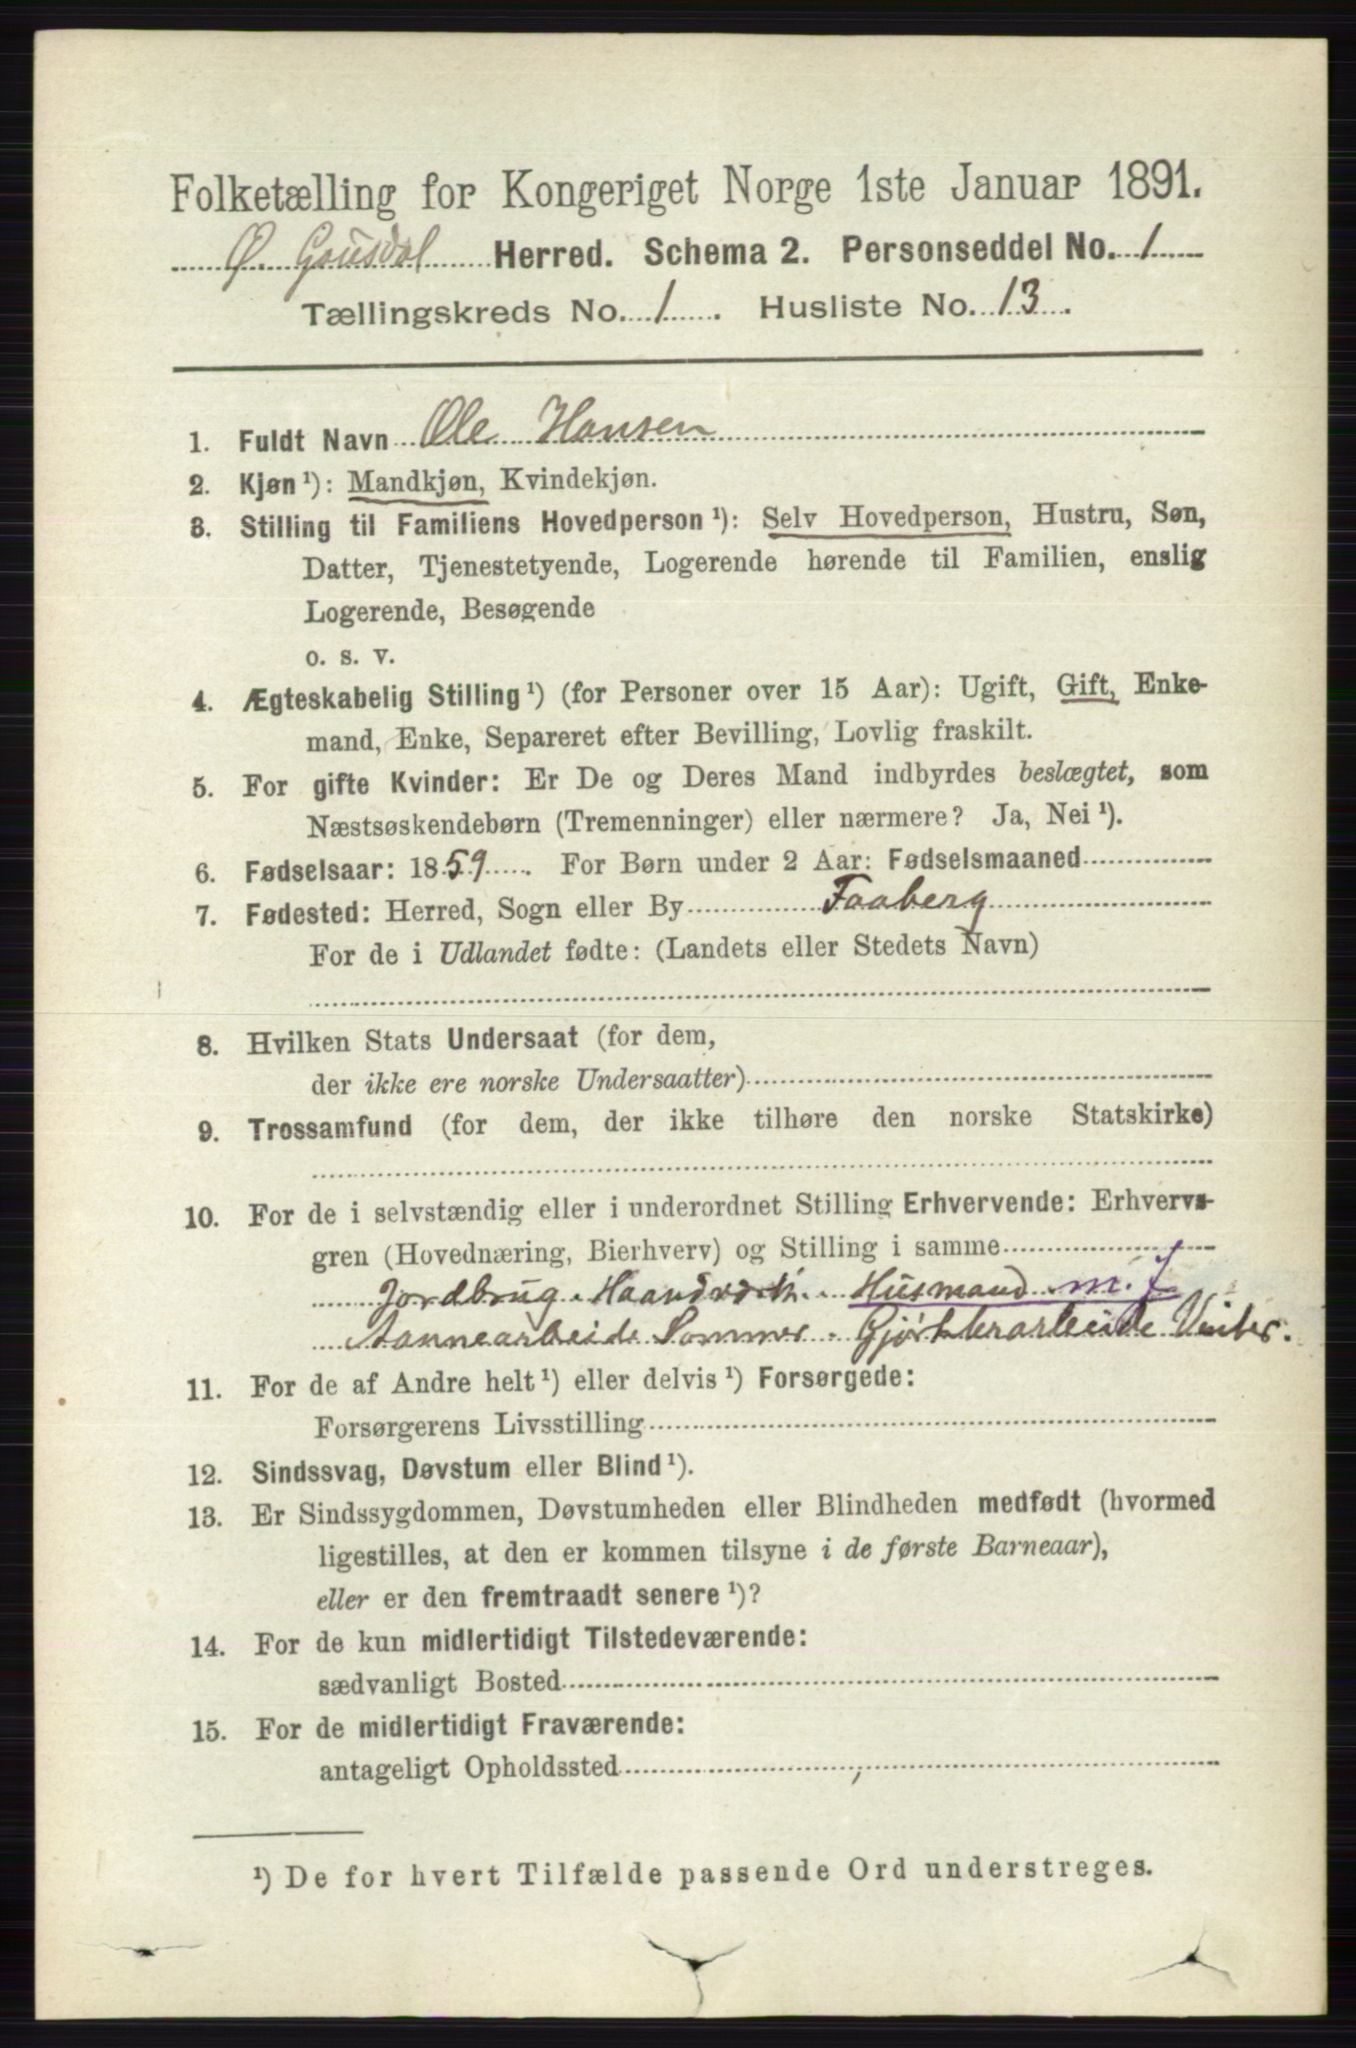 Folketælling for Kongeriget Norge 1ste Januar 1891.
Ø. Gausdal Herred. Schema 2. Personseddel No. 1
Tællingskreds No. 1. Husliste No. 13.
1. Fuldt Navn Ole Hansen
2. Kjøn ¹): Mandkjøn, Kvindekjøn.
3. Stilling til Familiens Hovedperson ¹): Selv Hovedperson, Hustru, Søn,
Datter, Tjenestetyende, Logerende hørende til Familien, enslig
Logerende, Besøgende
o. s. v.
4. Ægteskabelig Stilling ¹) (for Personer over 15 Aar): Ugift, Gift, Enke-
mand, Enke, Separeret efter Bevilling, Lovlig fraskilt.
5. For gifte Kvinder: Er De og Deres Mand indbyrdes beslægtet, som
Næstsøskendebørn (Tremenninger) eller nærmere? Ja, Nei ¹).
6. Fødselsaar: 1859. For Børn under 2 Aar: Fødselsmaaned
7. Fødested: Herred, Sogn eller By Faaberg
For de i Udlandet fødte: (Landets eller Stedets Navn)
8. Hvilken Stats Undersaat (for dem,
der ikke ere norske Undersaatter)
9. Trossamfund (for dem, der ikke tilhøre den norske Statskirke)
10. For de i selvstændig eller i underordnet Stilling Erhvervende: Erhvervs-
gren (Hovednæring, Bierhverv) og Stilling i samme
Jordbrug. Haandværk. Husmand m. J
Aannearbeide Sommer. Vinter.
11. For de af Andre helt ¹) eller delvis ¹) Forsørgede:
Forsørgerens Livsstilling
12. Sindssvag, Døvstum eller Blind ¹).
13. Er Sindssygdommen, Døvstumheden eller Blindheden medfødt (hvormed
ligestilles, at den er kommen tilsyne i de første Barneaar),
eller er den fremtraadt senere ¹)?
14. For de kun midlertidigt Tilstedeværende:
sædvanligt Bosted
15. For de midlertidigt Fraværende:
antageligt Opholdssted
¹) De for hvert Tilfælde passende Ord understreges.